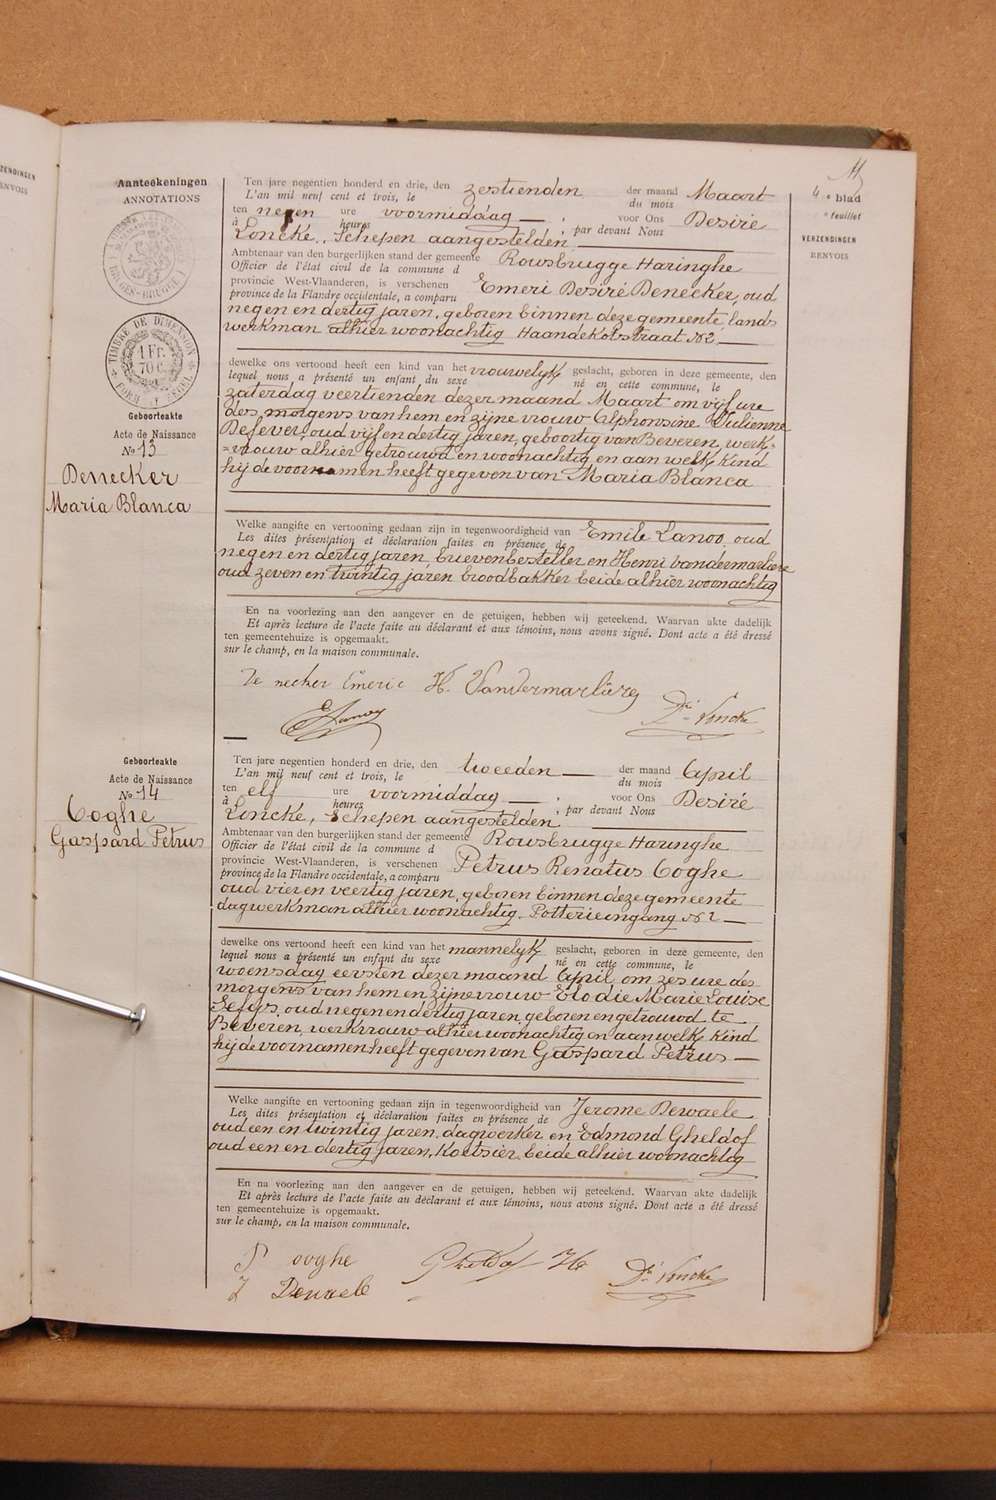 Aanteekeningen
ANNOTATIONS
4e blad
e feuillet
VERZENDINGEN
RENVOIS
TIMBRE DE DIMENSION
1 Fr.
70 C.
Geboorteakte
Acte de Naissance
No 13
Denecker
Maria Blanca
Ten jare negentien honderd en drie, den zestienden der maand Maart
L'an mil neuf cent et trois, le du mois
ten negen ure voormiddag — , voor Ons Desiré
à heures , par devant Nous
Loncke, Schepen aangestelden
Ambtenaar van den burgerlijken stand der gemeente Rousbrugge Haringhe
Officier de l'état civil de la commune d
provincie West-Vlaanderen, is verschenen Emeri Desiré Denecker, oud
province de la Flandre occidentale, a comparu
negen en dertig jaren, geboren binnen deze gemeente, lands
werkman alhier woonachtig Haandekotstraat No 2 —
dewelke ons vertoond heeft een kind van het vrouwelyk geslacht, geboren in deze gemeente, den
lequel nous a présenté un enfant du sexe né en cette commune, le
zaterdag veertienden dezer maand Maart om vijf ure
des morgens van hem en zijne vrouw Alphonsine Julienne
Defever, oud vijf en dertig jaren, geboortig van Beveren, werk=
=vrouw alhier getrouwd en woonachtig, en aan welk kind
hij de voornamen heeft gegeven van Maria Blanca
Welke aangifte en vertooning gedaan zijn in tegenwoordigheid van Emile Lanoo, oud
Les dites présentation et déclaration faites en présence de
negen en dertig jaren, brievenbesteller en Henri Vandermarliere
oud zeven en twintig jaren broodbakker beide alhier woonachtig
En na voorlezing aan den aangever en de getuigen, hebben wij geteekend. Waarvan akte dadelijk
Et après lecture de l'acte faite au déclarant et aux témoins, nous avons signé. Dont acte a été dressé
ten gemeentehuize is opgemaakt.
sur le champ, en la maison communale.
De necker Emeric H. Vandermarliere
E Lanoo Dré Loncke
Geboorteakte
Acte de Naissance
No 14
Coghe
Gaspard Petrus
Ten jare negentien honderd en drie, den tweeden — der maand April
L'an mil neuf cent et trois, le du mois
ten elf ure voormiddag — , voor Ons Desiré
à heures , par devant Nous
Loncke, Schepen aangestelden
Ambtenaar van den burgerlijken stand der gemeente Rousbrugge Haringhe
Officier de l'état civil de la commune d
provincie West-Vlaanderen, is verschenen Petrus Renatus Coghe
province de la Flandre occidentale, a comparu
oud vier en veertig jaren, geboren binnen deze gemeente
dagwerkman alhier woonachtig Potterieingang No 2 —
dewelke ons vertoond heeft een kind van het mannelyk geslacht, geboren in deze gemeente, den
lequel nous a présenté un enfant du sexe né en cette commune, le
woensdag eersten dezer maand April om zes ure des
morgens van hem en zijne vrouw Elodie Marie Louise
oud negen en dertig jaren, geboren en getrouwd te
Beveren, werkvrouw alhier woonachtig en aan welk kind
hij de voornamen heeft gegeven van Gaspard Petrus —
Welke aangifte en vertooning gedaan zijn in tegenwoordigheid van Jerome Dewaele
Les dites présentation et déclaration faites en présence de
oud een en twintig jaren, dagwerker en Edmond Gheldof
oud een en dertig jaren, Koetsier, beide alhier woonachtig
En na voorlezing aan den aangever en de getuigen, hebben wij geteekend. Waarvan akte dadelijk
Et après lecture de l'acte faite au déclarant et aux témoins, nous avons signé. Dont acte a été dressé
ten gemeentehuize is opgemaakt.
sur le champ, en la maison communale.
P Cooghe Gheldof Dré Loncke
J Dewaele